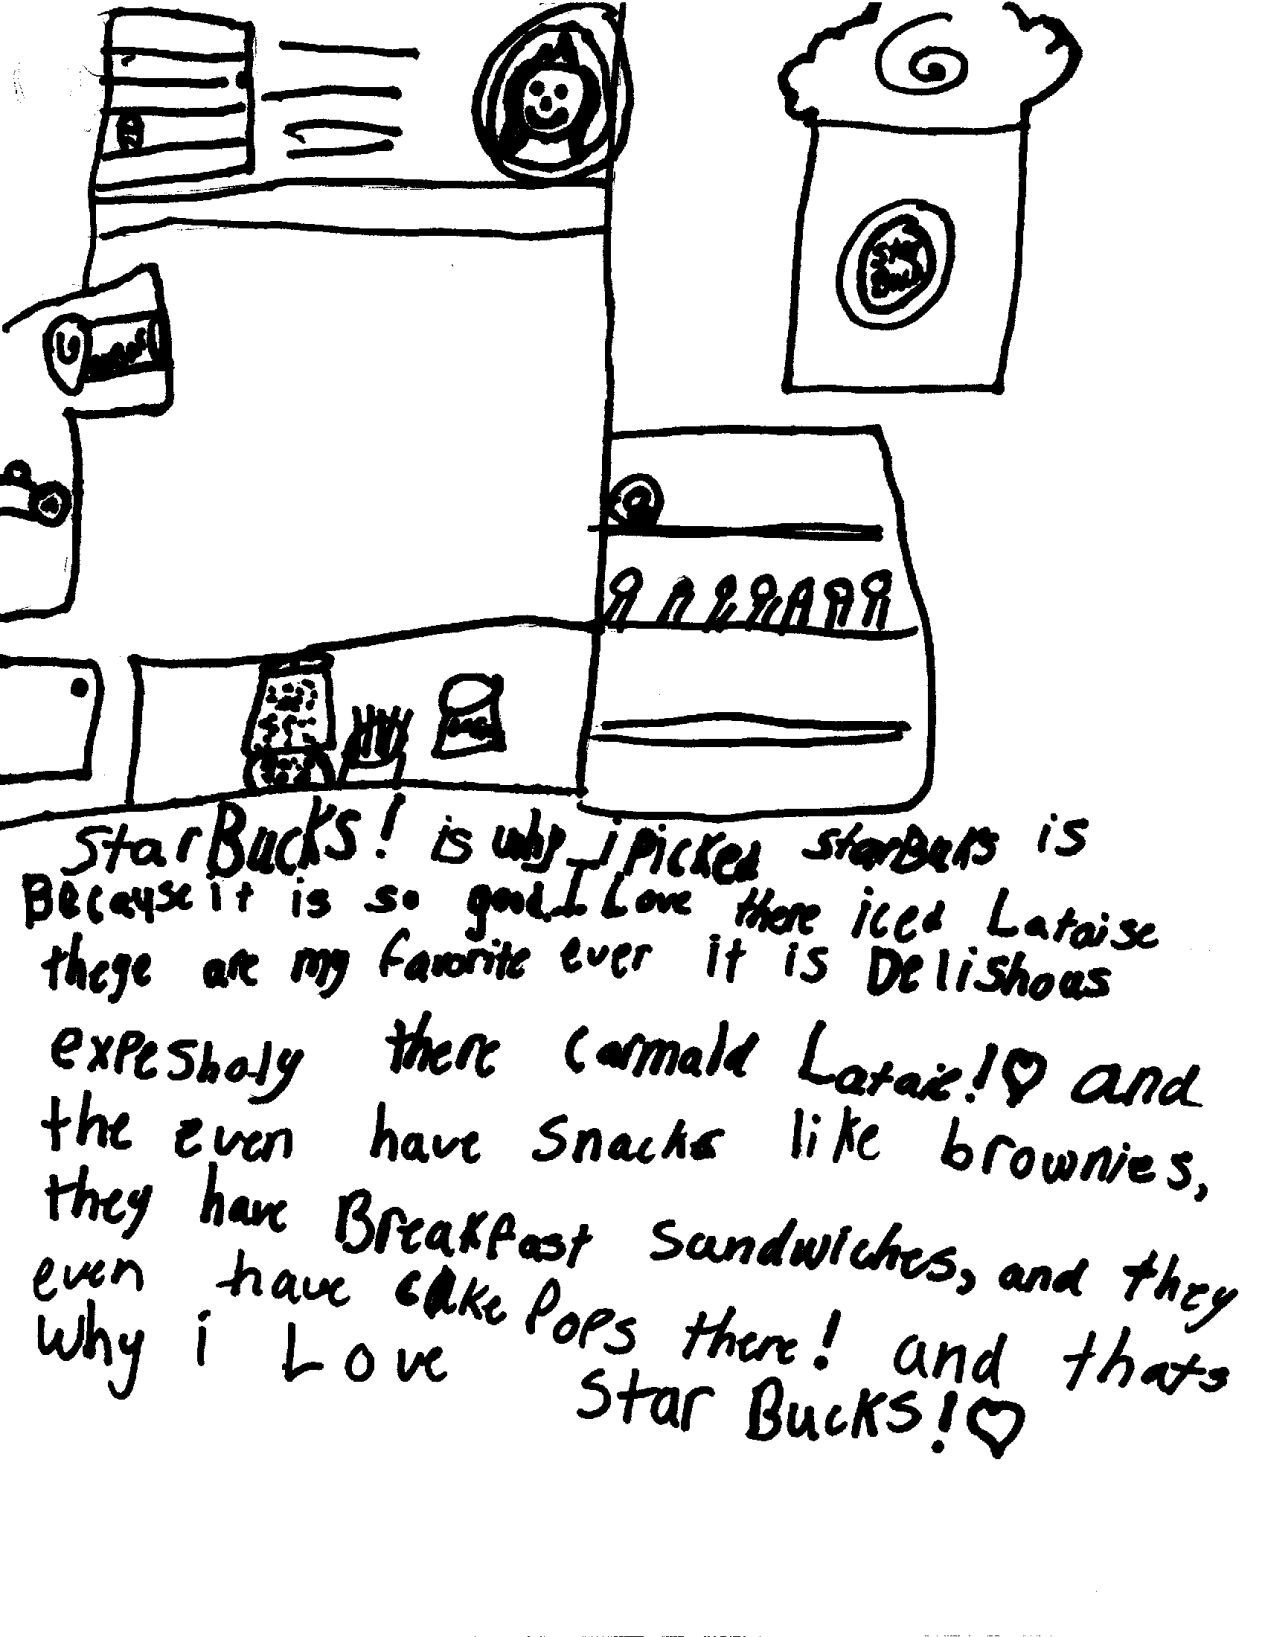 Star Buck
StarBucks! is why i picked starBuks is
Because it is so good. I Love there iced Lataise
thege are my favorite ever it is Delishoas
expesholy there carmald Lataie! ♡ and
the even have snacks like brownies,
they have Breakfast sandwiches, and they
even have cake Pops there! and thats
why i Love
Star Bucks! ♡